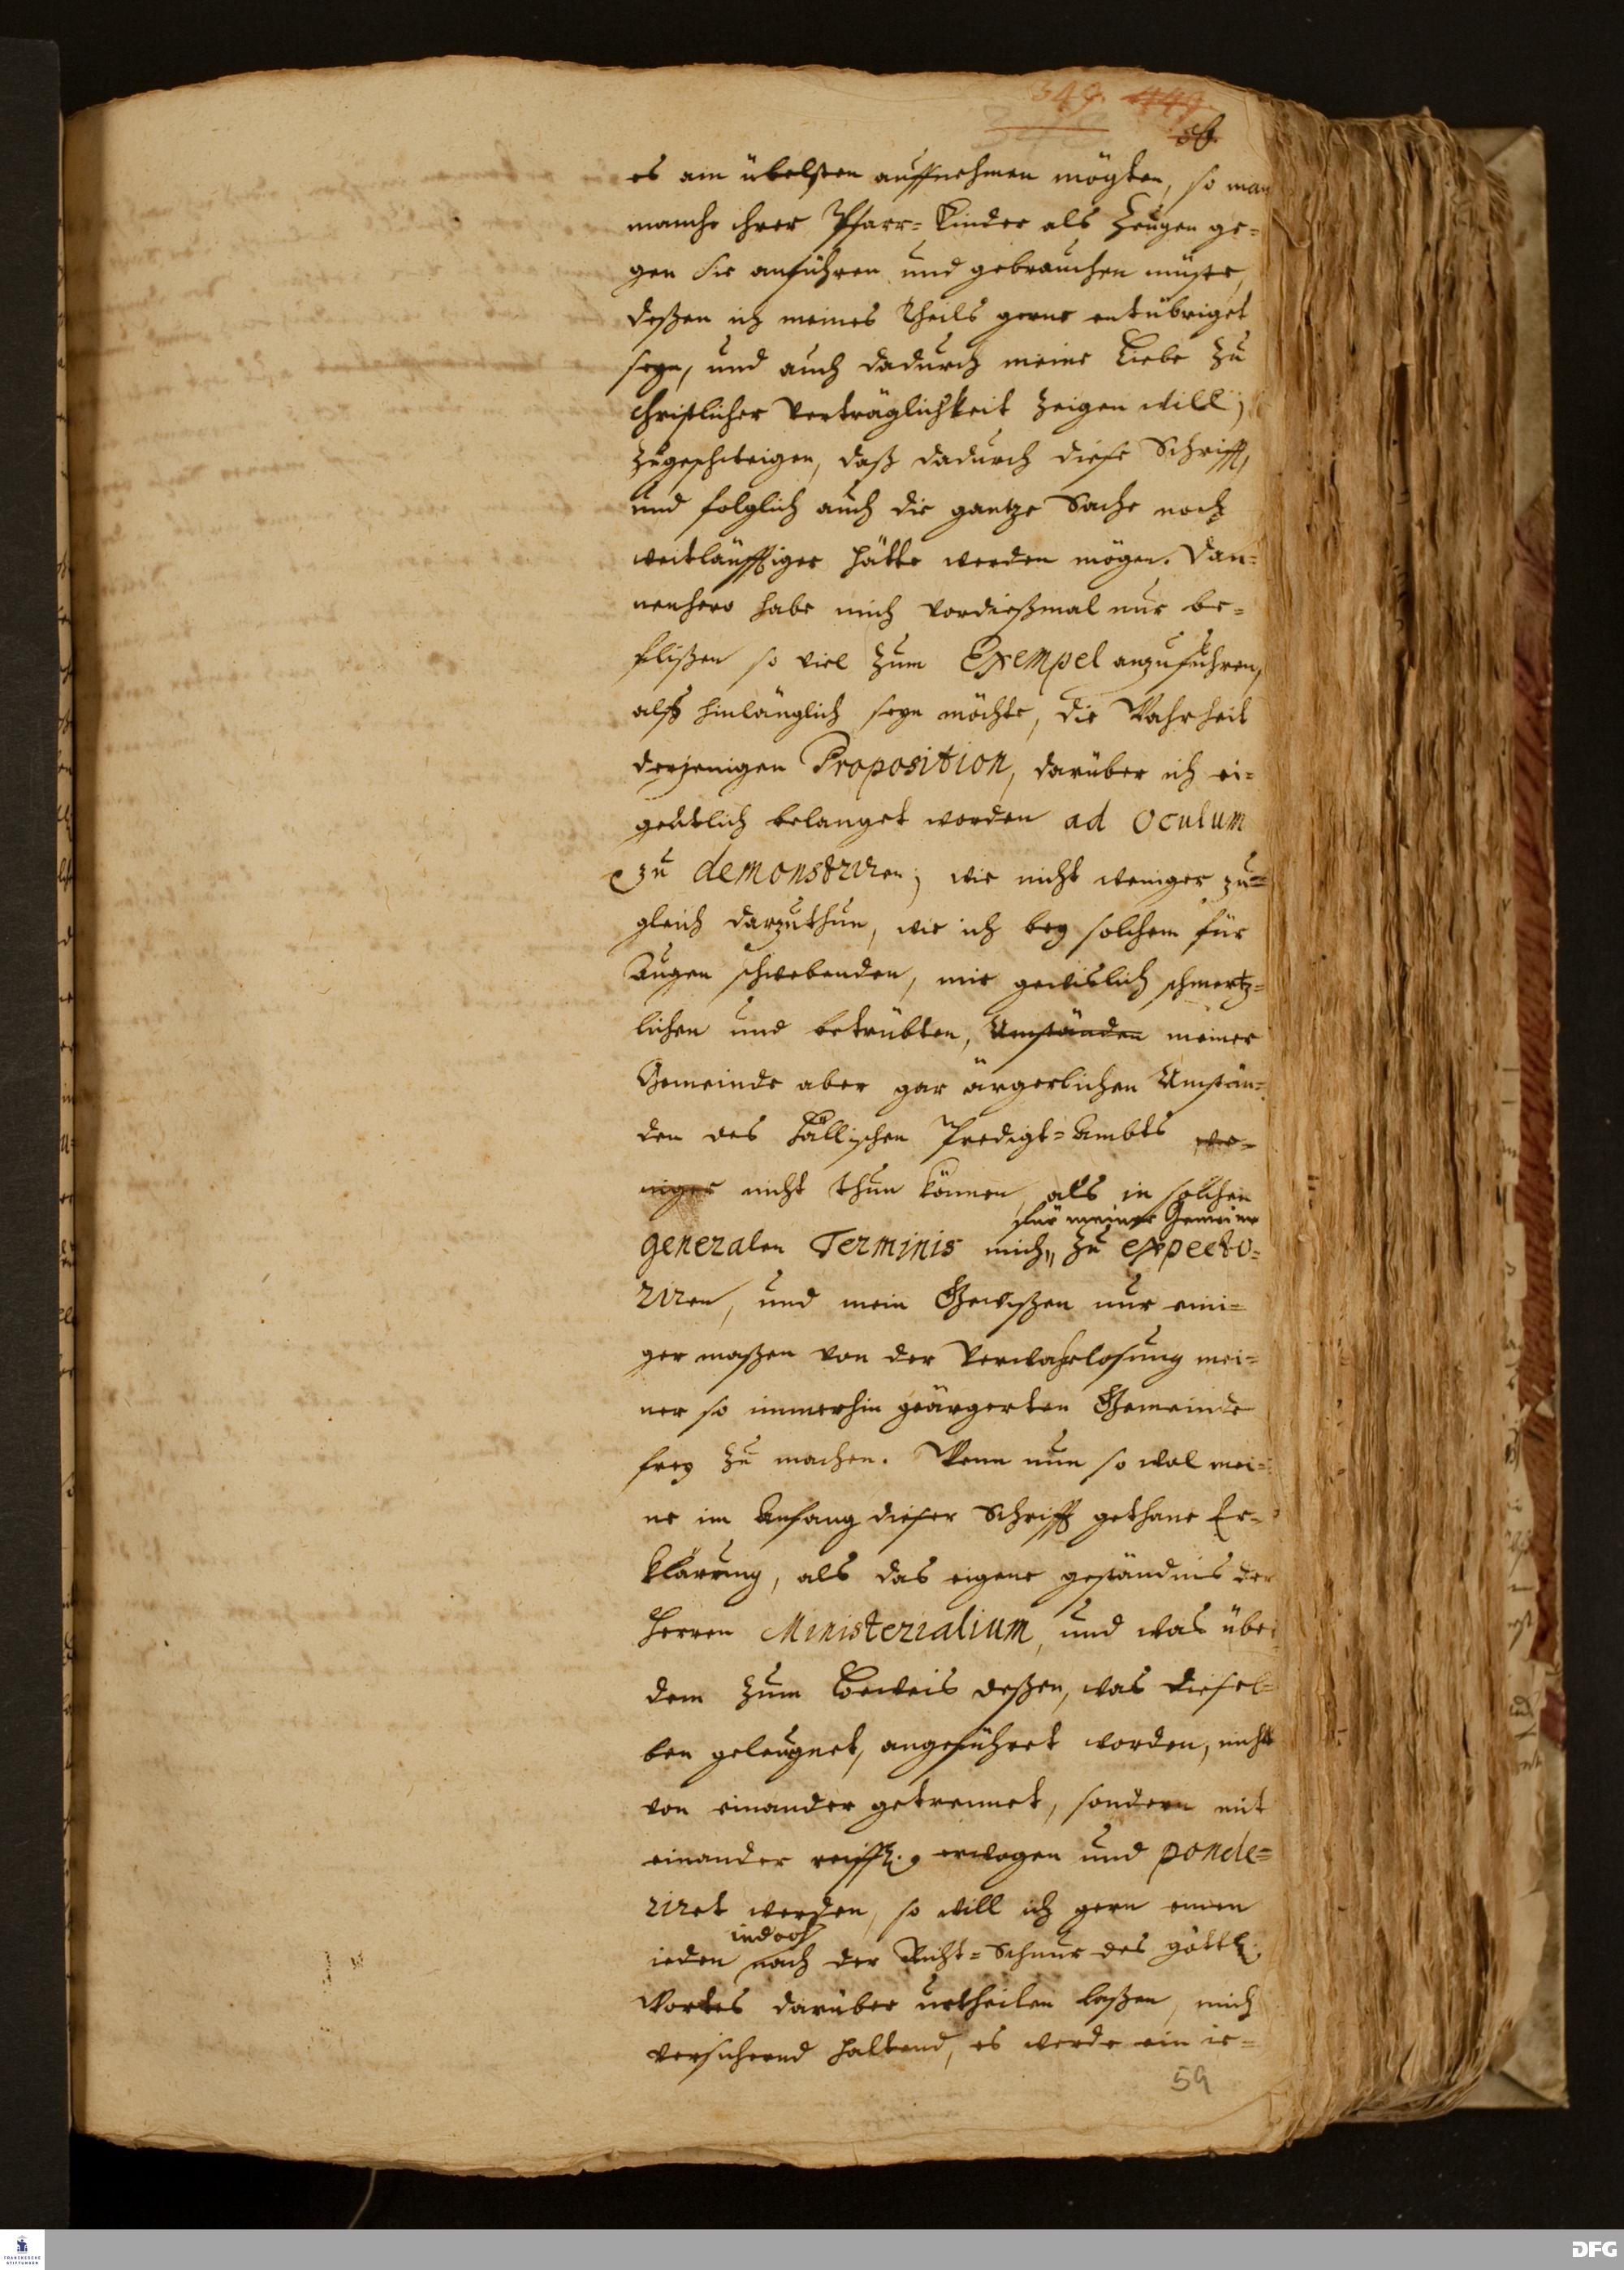 349. 449.
es am übelsten auffnehmen mögten, so man
manche ihrer Pfarr-Kinder als Zeugen ge-
gen Sie anführen und gebrauchen müste,
deßen ich meines Theils gerne entübriget
seyn, und auch dadurch meine Liebe zu
christlicher Verträglichkeit zeigen will;
zugeschweigen, daß dadurch diese Schrifft,
und folglich auch die gantze Sache noch
weitläufftiger hätte werden mögen. Dan-
nenhero habe mich vordießmal nur be-
flißen so viel zum Exempel anzuführen,
alß hinlänglich seyn möchte, die Wahrheit
derjenigen Proposition, darüber ich ei-
gentlich belanget worden ad oculum
zu demonstriren; wie nicht weniger zu-
gleich darzuthun, wie ich bey solchem für
Augen schwebenden, mir gewislich schmertz-
lichen und betrübten, Umständen meiner
Gemeinde aber gar ärgerlichen Umstän-
den des Hällischen Predigt-Ambts we-
niger nicht thun können, als in solchen
für meiner Gemeine
generalen Terminis mich zu expecto-
riren, und mein Gewißen nur eini-
ger maßen von der Verwahrlosung mei-
ner so immerhin geärgerten Gemeinde
frey zu machen. Wenn nun so wol mei-
ne im Anfang dieser Schrifft gethane Er-
klärung, als das eigene geständnis der
Herren Ministerialium, und was über
dem zum Beweis deßen, was diesel-
ben geleugnet, angeführet worden, nicht
von einander getrennet, sondern mit
einander reiffl. erwogen und ponde-
riret werden, so will ich gern einen
iedoch
ieden nach der Richt-Schnur des göttl.
Wortes darüber urtheilen laßen, mich
versichernd haltend, es werde ein ie-
59
FRANCKESCHE
STIFTUNGEN
DFG